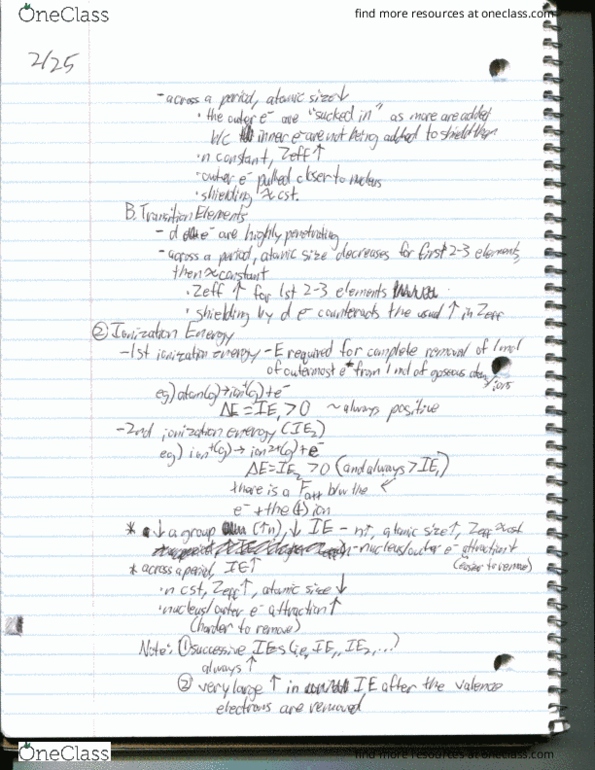 OneClass
find more resources at oneclass.com
2/25
- across a period, atomic size ↓
• the outer e⁻ are "sucked in" as more are added
b/c inner e⁻ are not being added to shield them
• n constant, Zeff ↑
• outer e⁻ pulled closer to nucleus
• shielding ≈ cst.
B. Transition Elements
- d e⁻ are highly penetrating
- across a period, atomic size decreases for first 2-3 elements,
then ≈ constant
• Zeff ↑ for 1st 2-3 elements
• shielding by d e⁻ counteracts the usual ↑ in Zeff
② Ionization Energy
- 1st ionization energy - E required for complete removal of 1 mol
of outermost e⁻ from 1 mol of gaseous atoms/ions
eg) atom(g) → ion⁺(g) + e⁻
ΔE = IE₁ > 0 ~ always positive
- 2nd ionization energy (IE₂)
eg) ion⁺(g) → ion²⁺(g) + e⁻
ΔE = IE₂ > 0 (and always > IE₁)
there is a Fatt b/w the
e⁻ + the (+) ion
* ↓ a group (↑n), ↓ IE - n↑, atomic size ↑, Zeff ≈ cst
- nucleus/outer e⁻ attraction ↓
(easier to remove)
* across a period, IE ↑
• n cst, Zeff ↑, atomic size ↓
• nucleus/outer e⁻ attraction ↑
(harder to remove)
Note: ① successive IEs (i.e. IE₁, IE₂, ...)
always ↑
② very large ↑ in IE after the valence
electrons are removed
OneClass
find more resources at oneclass.com